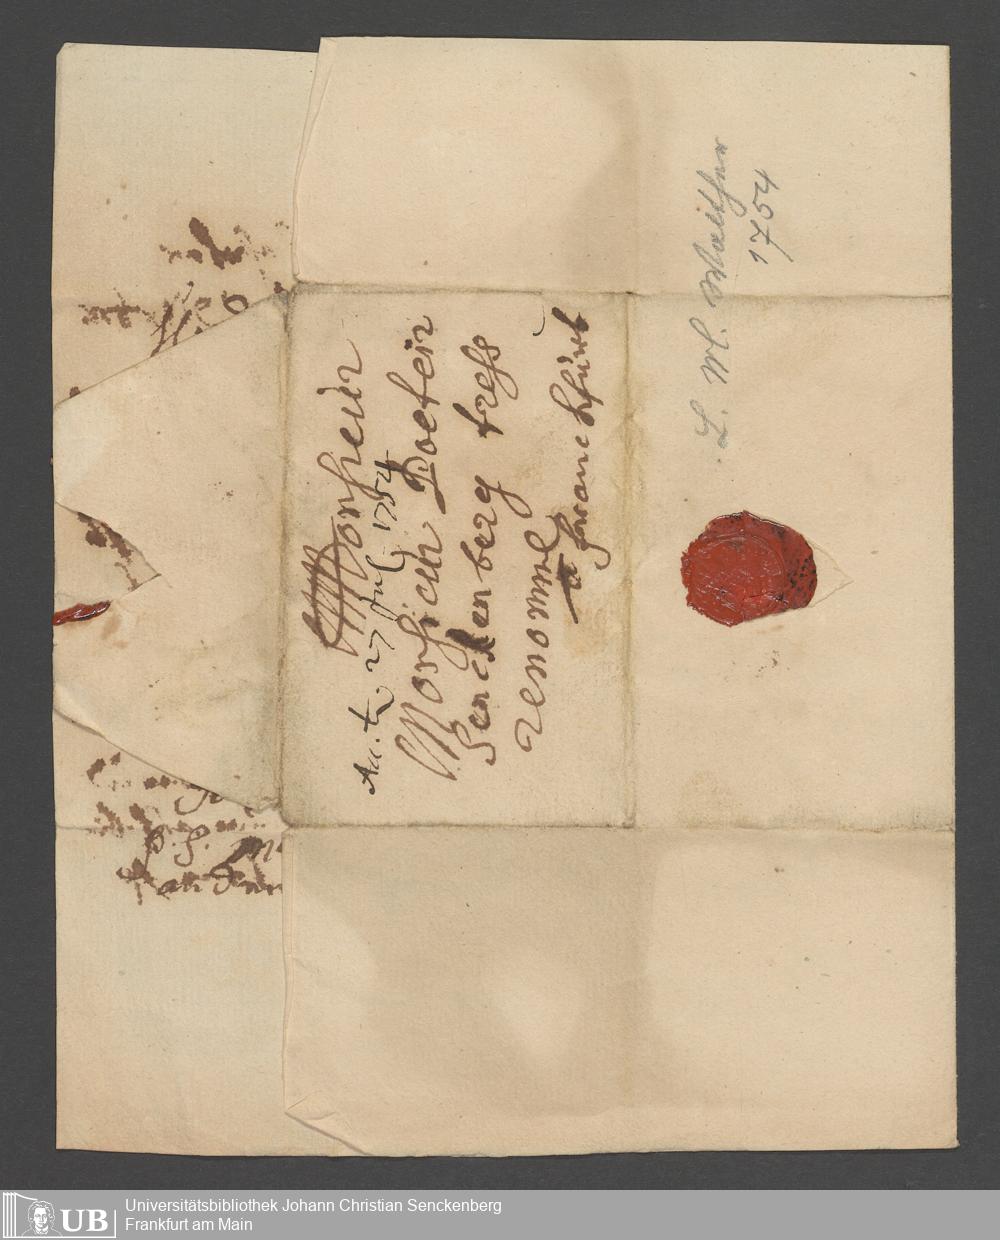 Monsieur
Acc. 27 Jul. 1754
Monsieur Docteir
Senckenberg tress
renommé
a francckfúrt
L. M. Walther
1754
P. S.
UB
Universitätsbibliothek Johann Christian Senckenberg
Frankfurt am Main